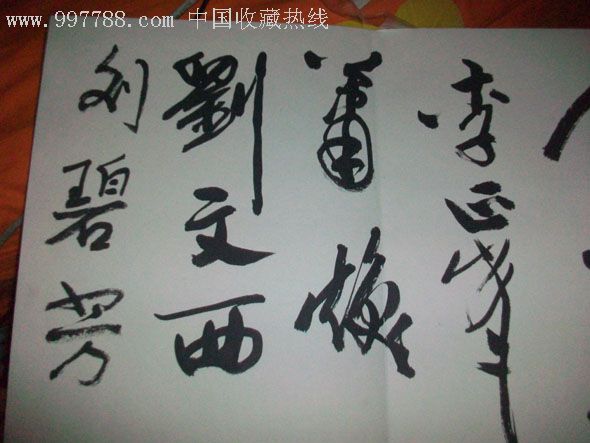 www.997788.com 中国收藏热线
李正峰
萧焕
劉文西
刘碧芳